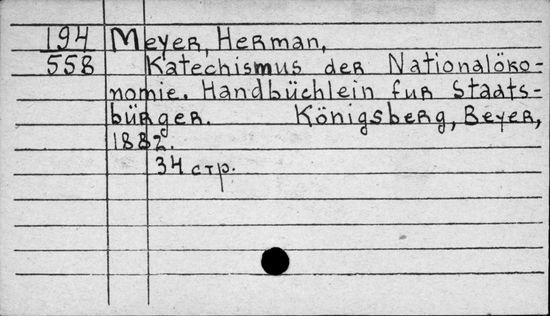 194 Meyer, Herman,
558 Katechismus der Nationalöko-
nomie. Handbüchlein fur Staats-
bürger. Königsberg, Beyer,
1882.
34 стр.